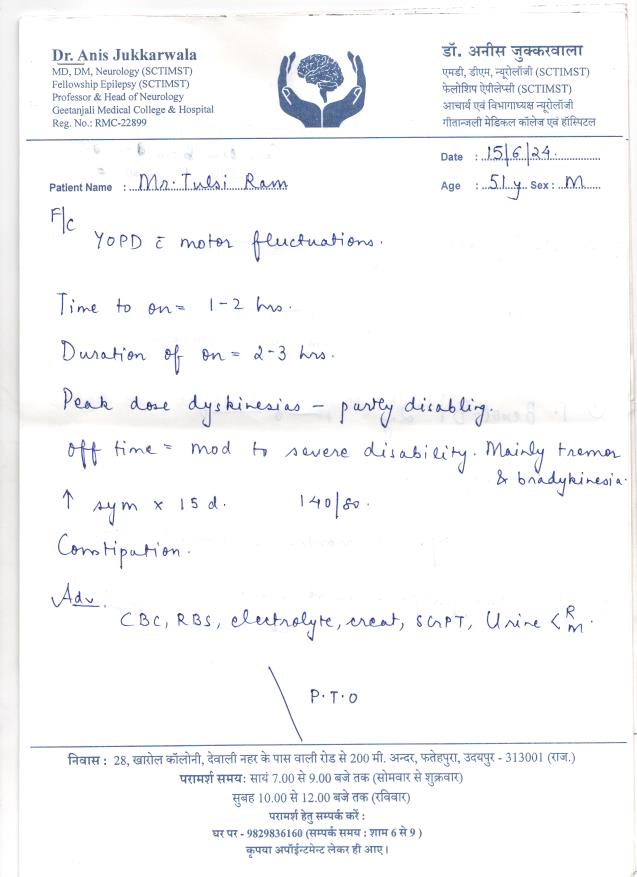 Dr. Anis Jukkarwala
MD, DM, Neurology (SCTIMST)
Fellowship Epilepsy (SCTIMST)
Professor & Head of Neurology
Geetanjali Medical College & Hospital
Reg. No.: RMC-22899
डॉ. अनीस जुक्करवाला
एमडी, डीएम, न्यूरोलॉजी (SCTIMST)
फेलोशिप ऐपीलेप्सी (SCTIMST)
आचार्य एवं विभागाध्यक्ष न्यूरोलॉजी
गीतान्जली मेडिकल कॉलेज एवं हॉस्पिटल
Date : 15/6/24
Patient Name : Mr. Tulsi Ram
Age : 51 y Sex : M
F/c
YOPD c̄ motor fluctuations.
Time to on = 1-2 hrs.
Duration of on = 2-3 hrs.
Peak dose dyskinesias - partly disabling.
Off time = mod to severe disability. Mainly tremor
& bradykinesia.
↑ sym x 15 d. 140/80.
Constipation.
Adv.
CBC, RBS, electrolyte, creat, SGPT, Urine < R
M.
P.T.O
निवास : 28, खारोल कॉलोनी, देवाली नहर के पास वाली रोड से 200 मी. अन्दर, फतेहपुरा, उदयपुर - 313001 (राज.)
परामर्श समय: सायं 7.00 से 9.00 बजे तक (सोमवार से शुक्रवार)
सुबह 10.00 से 12.00 बजे तक (रविवार)
परामर्श हेतु सम्पर्क करें :
घर पर - 9829836160 (सम्पर्क समय : शाम 6 से 9 )
कृपया अपॉईन्टमेन्ट लेकर ही आए।